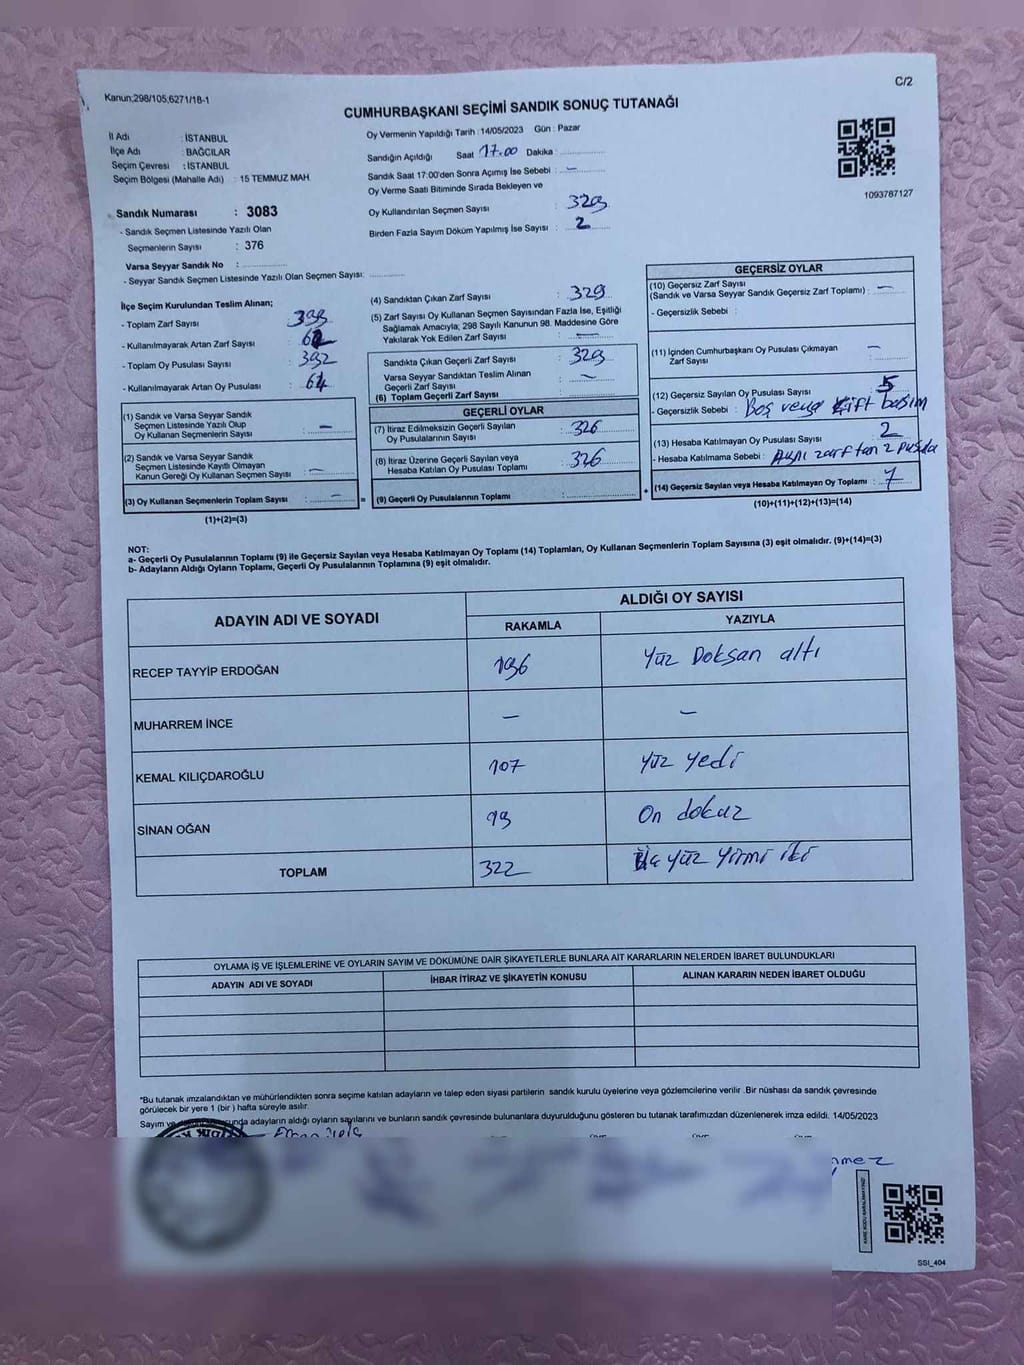 Kanun;298/105;6271/18-1
C/2
CUMHURBAŞKANI SEÇİMİ SANDIK SONUÇ TUTANAĞI
İl Adı : İSTANBUL
İlçe Adı : BAĞCILAR
Seçim Çevresi : İSTANBUL
Seçim Bölgesi (Mahalle Adı) : 15 TEMMUZ MAH.
Sandık Numarası : 3083
- Sandık Seçmen Listesinde Yazılı Olan
Seçmenlerin Sayısı : 376
Varsa Seyyar Sandık No :
- Seyyar Sandık Seçmen Listesinde Yazılı Olan Seçmen Sayısı:
Oy Vermenin Yapıldığı Tarih : 14/05/2023 Gün : Pazar
Sandığın Açıldığı Saat 17.00 Dakika :
Sandık Saat 17:00'den Sonra Açımış İse Sebebi : -
Oy Verme Saati Bitiminde Sırada Bekleyen ve
Oy Kullandırılan Seçmen Sayısı : 329
Birden Fazla Sayım Döküm Yapılmış İse Sayısı : 2
1093787127
İlçe Seçim Kurulundan Teslim Alınan;
- Toplam Zarf Sayısı : 393
- Kullanılmayarak Artan Zarf Sayısı :
- Toplam Oy Pusulası Sayısı : 392
- Kullanılmayarak Artan Oy Pusulası : 64
(1) Sandık ve Varsa Seyyar Sandık
Seçmen Listesinde Yazılı Olup
Oy Kullanan Seçmenlerin Sayısı : -
(2) Sandık ve Varsa Seyyar Sandık
Seçmen Listesinde Kayıtlı Olmayan
Kanun Gereği Oy Kullanan Seçmen Sayısı : -
(3) Oy Kullanan Seçmenlerin Toplam Sayısı : - =
(1)+(2)=(3)
(4) Sandıktan Çıkan Zarf Sayısı : 329
(5) Zarf Sayısı Oy Kullanan Seçmen Sayısından Fazla İse, Eşitliği
Sağlamak Amacıyla; 298 Sayılı Kanunun 98. Maddesine Göre
Yakılarak Yok Edilen Zarf Sayısı : -
Sandıkta Çıkan Geçerli Zarf Sayısı : 329
Varsa Seyyar Sandıktan Teslim Alınan
Geçerli Zarf Sayısı : -
(6) Toplam Geçerli Zarf Sayısı :
GEÇERLİ OYLAR
(7) İtiraz Edilmeksizin Geçerli Sayılan
Oy Pusulalarının Sayısı : 326
(8) İtiraz Üzerine Geçerli Sayılan veya
Hesaba Katılan Oy Pusulası Toplamı : 326
(9) Geçerli Oy Pusulalarının Toplamı : +
GEÇERSİZ OYLAR
(10) Geçersiz Zarf Sayısı
(Sandık ve Varsa Seyyar Sandık Geçersiz Zarf Toplamı) : -
- Geçersizlik Sebebi :
(11) İçinden Cumhurbaşkanı Oy Pusulası Çıkmayan
Zarf Sayısı : -
(12) Geçersiz Sayılan Oy Pusulası Sayısı : 5
- Geçersizlik Sebebi : Boş veya çift basım
(13) Hesaba Katılmayan Oy Pusulası Sayısı : 2
- Hesaba Katılmama Sebebi : Aynı zarftan 2 pusula
(14) Geçersiz Sayılan veya Hesaba Katılmayan Oy Toplamı : 7
(10)+(11)+(12)+(13)=(14)
NOT:
a- Geçerli Oy Pusulalarının Toplamı (9) ile Geçersiz Sayılan veya Hesaba Katılmayan Oy Toplamı (14) Toplamları, Oy Kullanan Seçmenlerin Toplam Sayısına (3) eşit olmalıdır. (9)+(14)=(3)
b- Adayların Aldığı Oyların Toplamı, Geçerli Oy Pusulalarının Toplamına (9) eşit olmalıdır.
ADAYIN ADI VE SOYADI
ALDIĞI OY SAYISI
RAKAMLA YAZIYLA
RECEP TAYYİP ERDOĞAN 196 Yüz Doksan altı
MUHARREM İNCE - -
KEMAL KILIÇDAROĞLU 107 Yüz yedi
SİNAN OĞAN 19 On dokuz
TOPLAM 322 Üç yüz yirmi iki
OYLAMA İŞ VE İŞLEMLERİNE VE OYLARIN SAYIM VE DÖKÜMÜNE DAİR ŞİKAYETLERLE BUNLARA AİT KARARLARIN NELERDEN İBARET BULUNDUKLARI
ADAYIN ADI VE SOYADI İHBAR İTİRAZ VE ŞİKAYETİN KONUSU ALINAN KARARIN NEDEN İBARET OLDUĞU
*Bu tutanak imzalandıktan ve mühürlendikten sonra seçime katılan adayların ve talep eden siyasi partilerin sandık kurulu üyelerine veya gözlemcilerine verilir. Bir nüshası da sandık çevresinde
görülecek bir yere 1 (bir) hafta süreyle asılır.
Sayım ve adayların aldığı oyların sayılarını ve bunların sandık çevresinde bulunanlara duyurulduğunu gösteren bu tutanak tarafımızdan düzenlenerek imza edildi. 14/05/2023
SSI_404